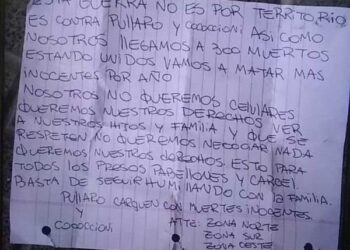 ESTA GUERRA NO ES POR TERRITORIO
ES CONTRA PULLARO Y COCOCCIONI ASI COMO
NOSOTROS LLEGAMOS A 300 MUERTOS
ESTANDO UNIDOS VAMOS A MATAR MAS
INOCENTES POR AÑO
NOSOTROS NO QUEREMOS CELULARES
QUEREMOS NUESTROS DERECHOS VER
A NUESTROS HIJOS Y FAMILIA Y QUE SE
RESPETEN NO QUEREMOS NEGOCIAR NADA
QUEREMOS NUESTROS DERECHOS ESTO PARA
TODOS LOS PRESOS PABELLONES Y CARCEL
BASTA DE SEGUIR HUMILLANDO CON LA FAMILIA.
PULLARO CARGUEN CON MUERTES INOCENTES.
Y
COCOCCIONI
ATTE: ZONA NORTE
ZONA SUR
ZONA OESTE